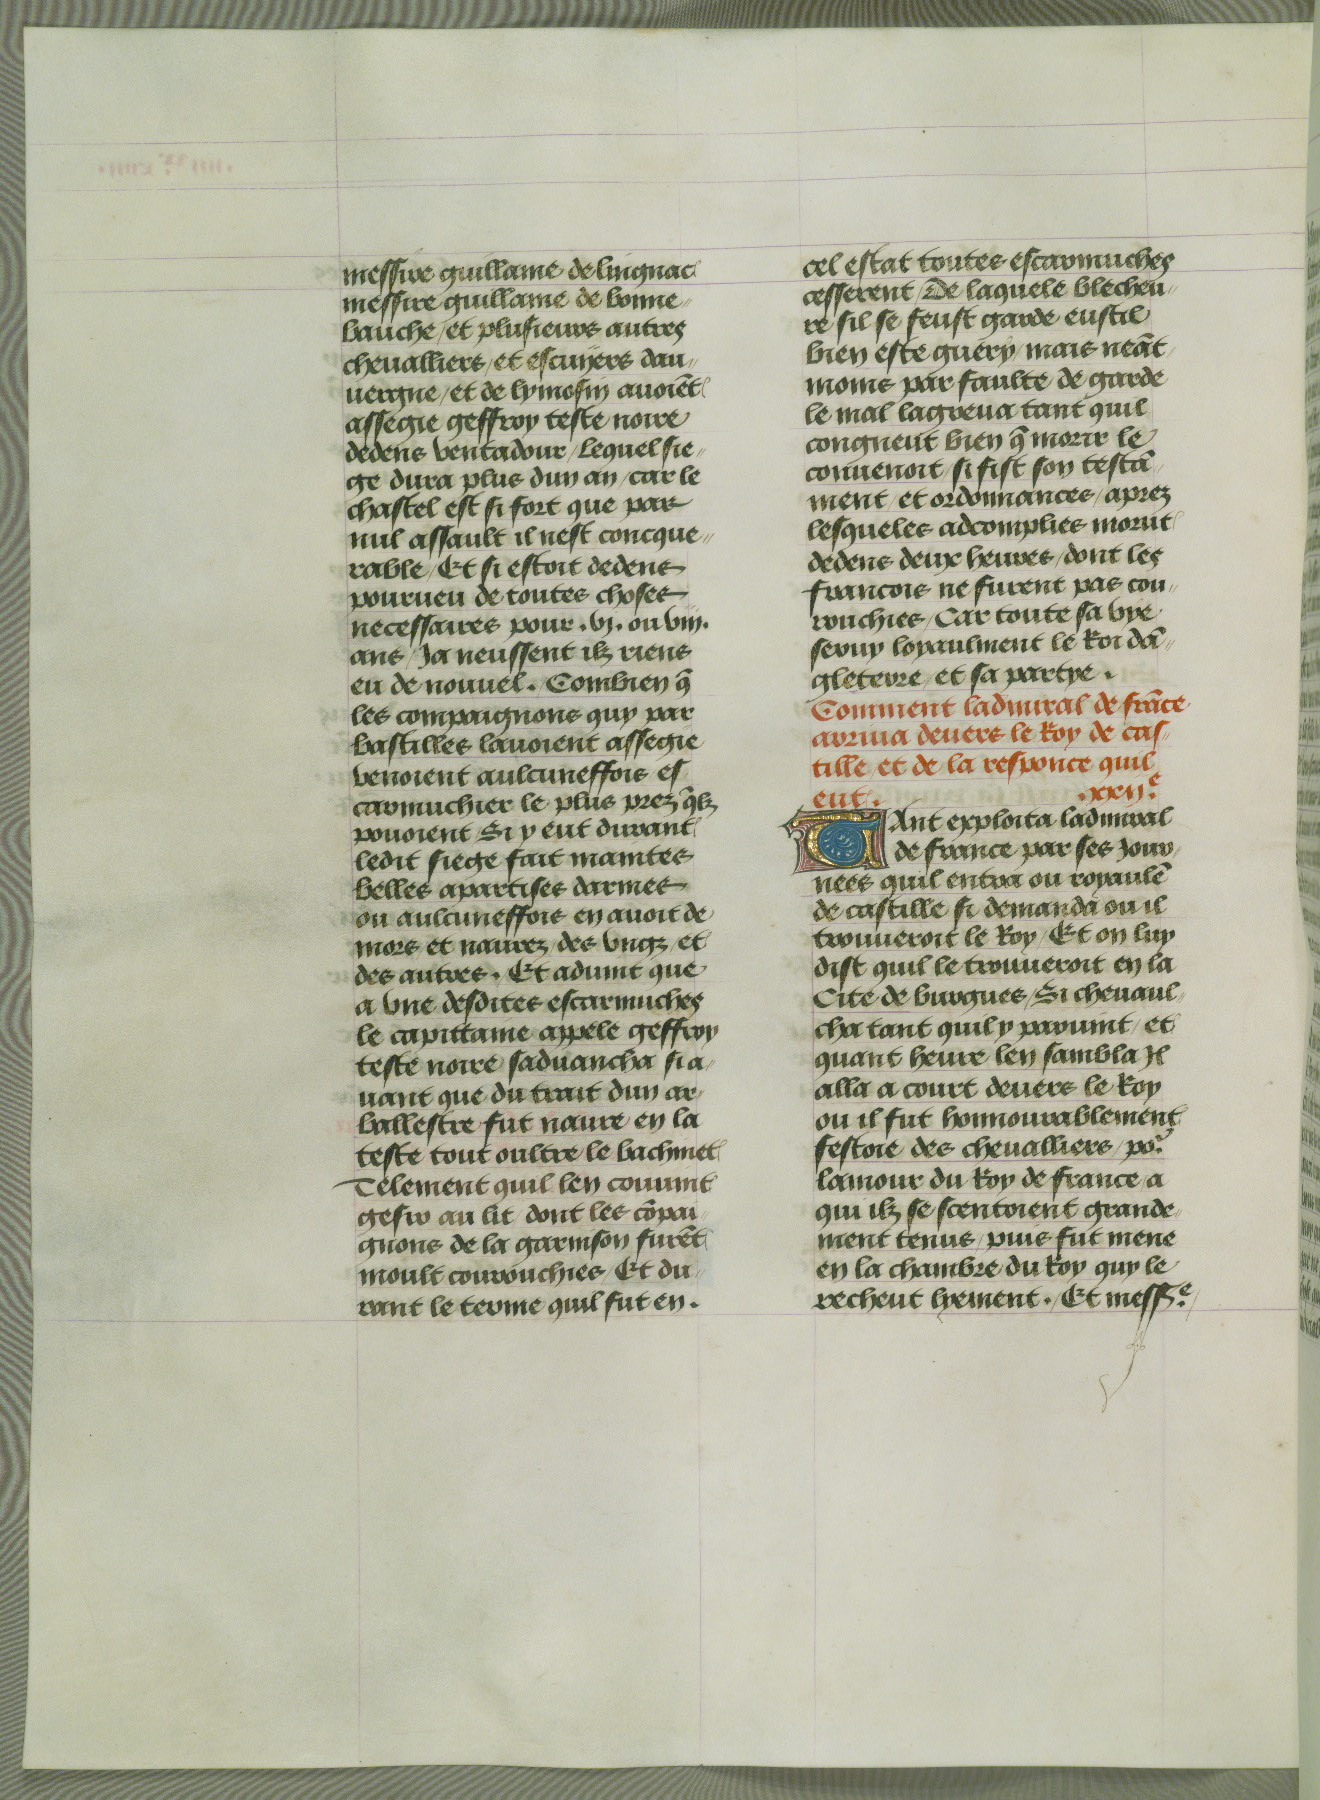 messire guillame de lingnac
messire guillame de bonne〃
bauche / et plusieurs autres
cheualliers / et escuyers dau〃
uergne / et de lymosin auoiēt
assegie geffroy teste noire
dedens ventadour / Lequel sie〃
ge dura plus dun an / car le
chastel est si fort que par
nul assault il nest concque〃
rable / Et si estoit dedens
pourueu de toutes choses
necessaires pour .vj. ou viij.
ans / Ja neussent ilz riens
eu de nouuel. Combien q̄
les compaignons quy par
bastilles lauoient assegie
venoient aulcuneffois es
carmuchier le plus prez q̄lz
pouoient Si y eut durant
ledit siege fait maintes
belles apartises darmes
ou aulcuneffois en auoit de
mors et naurez des vngz / et
des autres. Et aduint que
a vne desdites escarmuches
le capittaine appele geffroy
teste noire saduancha si a〃
uant que du trait dun ar〃
ballestre fut naure en la
teste tout oultre le bachinet
Telement quil len couuint
gesir au lit / dont les cōpai〃
gnons de la garnison furēt
moult courouchies / Et du〃
rant le terme quil fut en.
cel estat toutes escarmuches
cesserent / De laquele blecheu〃
re sil se feust garde eust il
bien este guery / mais neāt
moins par faulte de garde
le mal lagreua tant quil
congneut bien q̄ morir le
conuenoit / si fist son testā〃
ment / et ordonnances / aprez
lesqueles adcomplies morut
dedens deux heures / dont les
francois ne furent pas cou〃
rouchies / Car toute sa vye
seruy loyaulment le Roi dā〃
gleterre / et sa partye.
Comment ladmiral de frāce
arriua deuers le Roy de cas〃
tille / et de la responce quil
eut. .xxijᵉ.
TAnt exploita ladmiral
de france par ses Jour〃
nees quil entra ou royaulē
de castille si demanda ou il
trouueroit le Roy / Et on luy
dist quil le trouueroit en la
Cite de burgues / Si cheuaul〃
cha tant quil y paruint / et
quant heure len sambla Jl
alla a court deuers le Roy
ou il fut honnourablement
festoie des cheualliers / poʳ
lamour du Roy de france / a
qui ilz se scentoient grande〃
ment tenus / puis fut mene
en la chambre du Roy quy le
recheut lyement. Et messᵉ.